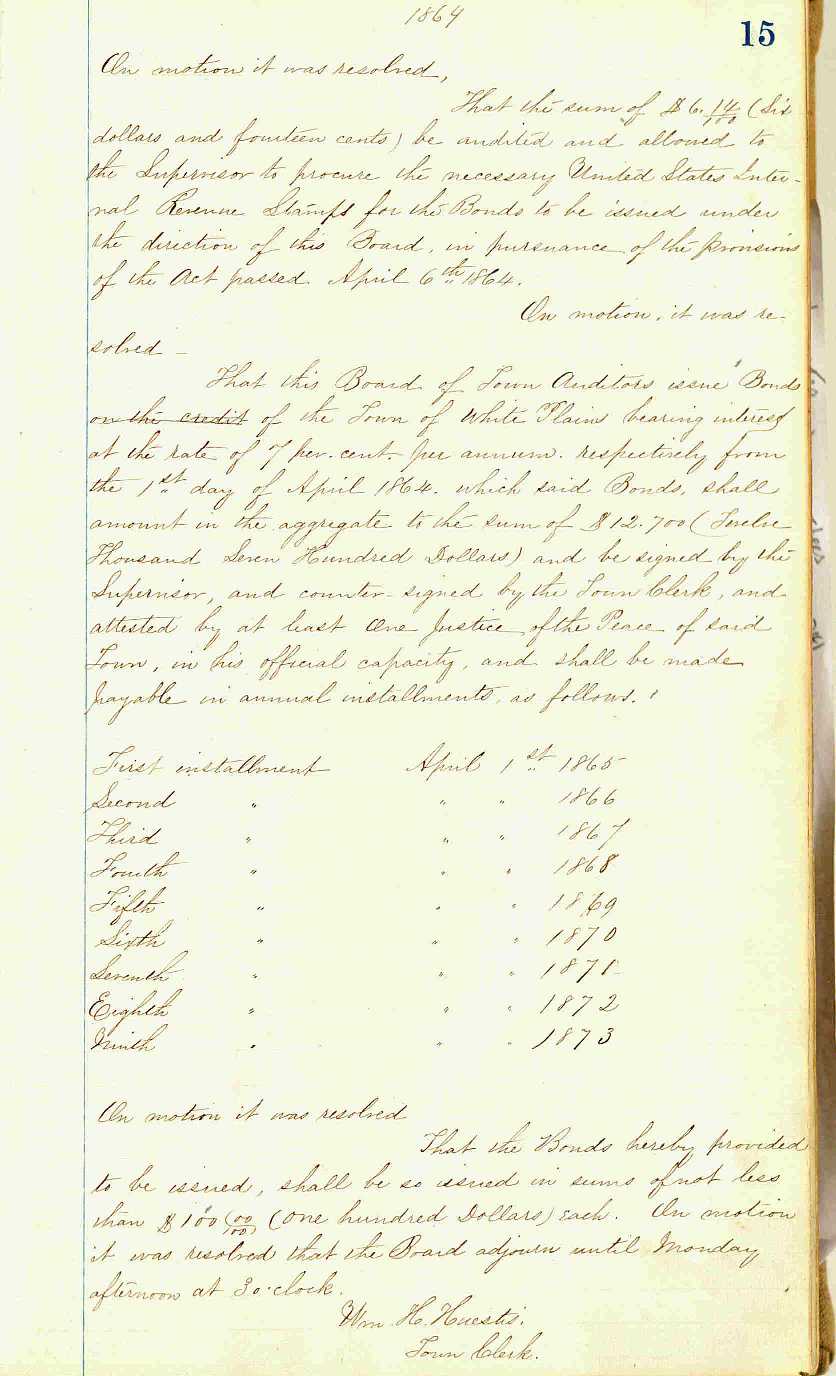 1864
15
On motion it was resolved,
That the sum of $6.14/100 (Six
dollars and fourteen cents) be audited and allowed to
the Supervisor to procure the necessary United States Inter-
nal Revenue Stamps for the Bonds to be issued under
the direction of this Board, in pursuance of the provisions
of the Act passed April 6th 1864.
On motion, it was re-
solved -
That this Board of Town Auditors issue Bonds
on the credit of the Town of White Plains bearing interest
at the rate of 7 per. cent. per annum. respectively from
the 1st day of April 1864. which said Bonds, shall
amount in the aggregate to the sum of $12.700 (Twelve
Thousand Seven Hundred Dollars) and be signed by the
Supervisor, and counter-signed by the Town Clerk, and
attested by at least One Justice of the Peace of said
Town, in his official capacity, and shall be made
payable in annual installments, as follows.
First installment April 1st 1865
Second " " " 1866
Third " " " 1867
Fourth " " " 1868
Fifth " " " 1869
Sixth " " " 1870
Seventh " " " 1871
Eighth " " " 1872
Ninth " " " 1873
On motion it was resolved
That the Bonds hereby provided
to be issued, shall be so issued in sums of not less
than $100 00/100 (One hundred Dollars) Each. On motion
it was resolved that the Board adjourn until Monday
afternoon at 3 o'clock.
Wm. H. Huestis.
Town Clerk.